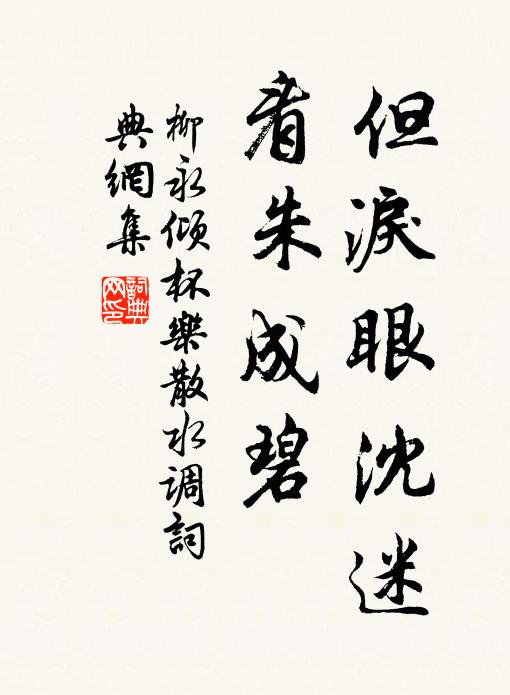 但淚眼沈迷
看朱成碧
柳永傾杯樂散水调詞
典網集
詞典网印